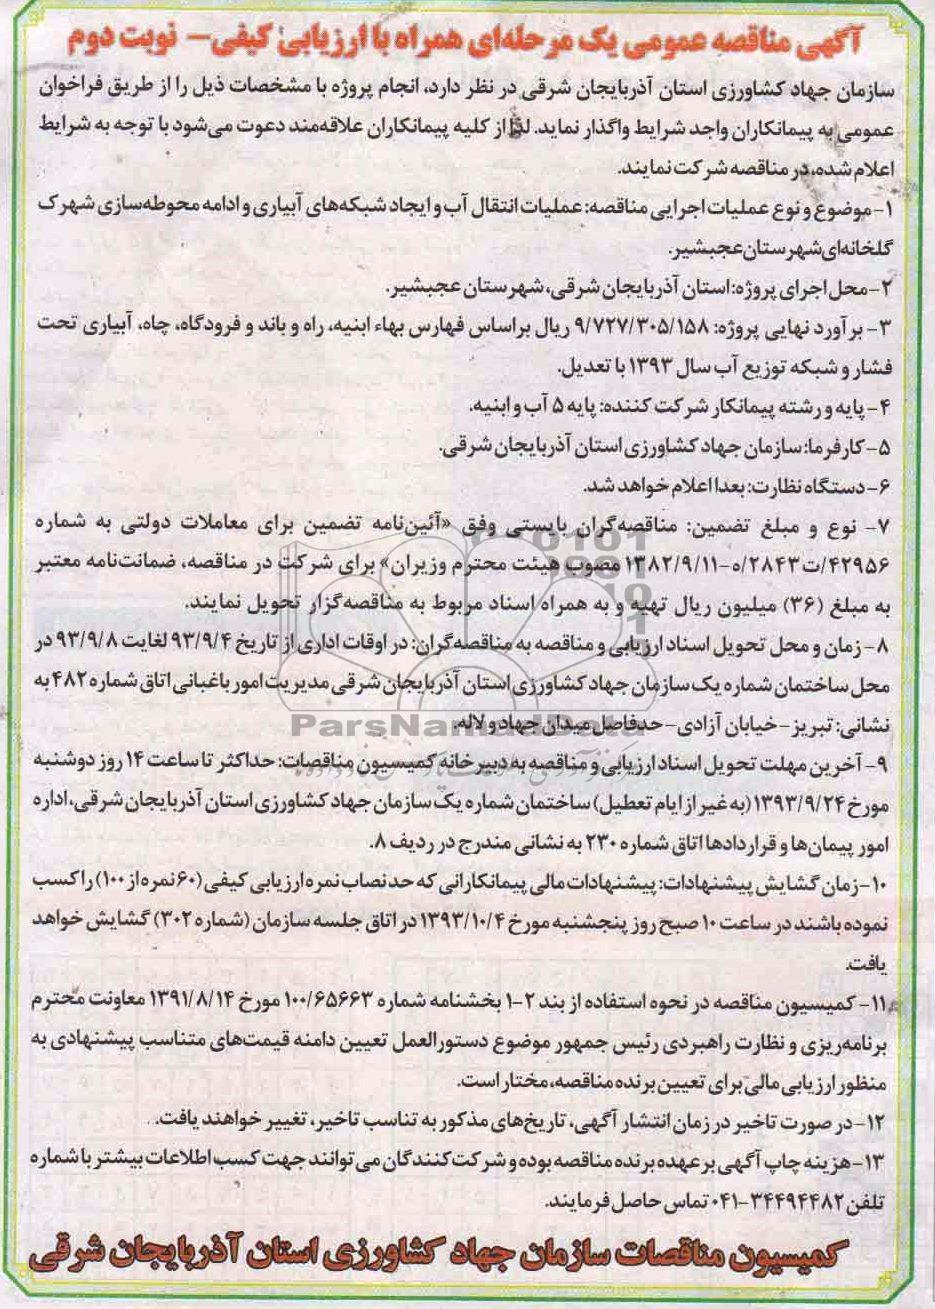 آگهی مناقصه عمومی یک مرحله‌ای همراه با ارزیابی کیفی – نوبت دوم
سازمان جهاد کشاورزی استان آذربایجان شرقی در نظر دارد، انجام پروژه با مشخصات ذیل را از طریق فراخوان
عمومی به پیمانکاران واجد شرایط واگذار نماید. لذا از کلیه پیمانکاران علاقه‌مند دعوت می‌شود با توجه به شرایط
اعلام شده، در مناقصه شرکت نمایند.
۱- موضوع و نوع عملیات اجرایی مناقصه: عملیات انتقال آب و ایجاد شبکه‌های آبیاری و ادامه محوطه‌سازی شهرک
گلخانه‌ای شهرستان عجبشیر.
۲- محل اجرای پروژه: استان آذربایجان شرقی، شهرستان عجبشیر.
۳- برآورد نهایی پروژه: ۹/۷۲۷/۳۰۵/۱۵۸ ریال براساس فهارس بهاء ابنیه، راه و باند و فرودگاه، چاه، آبیاری تحت
فشار و شبکه توزیع آب سال ۱۳۹۳ با تعدیل.
۴- پایه و رشته پیمانکار شرکت کننده: پایه ۵ آب و ابنیه.
۵- کارفرما: سازمان جهاد کشاورزی استان آذربایجان شرقی.
۶- دستگاه نظارت: بعدا اعلام خواهد شد.
۷- نوع و مبلغ تضمین: مناقصه‌گران بایستی وفق «آئین‌نامه تضمین برای معاملات دولتی به شماره
۴۲۹۵۶/ت۲۸۴۳/ه-۱۳۸۲/۹/۱۱ مصوب هیئت محترم وزیران» برای شرکت در مناقصه، ضمانت‌نامه معتبر
به مبلغ (۳۶) میلیون ریال تهیه و به همراه اسناد مربوط به مناقصه‌گزار تحویل نمایند.
۸- زمان و محل تحویل اسناد ارزیابی و مناقصه به مناقصه‌گران: در اوقات اداری از تاریخ ۹۳/۹/۴ لغایت ۹۳/۹/۸ در
محل ساختمان شماره یک سازمان جهاد کشاورزی استان آذربایجان شرقی مدیریت امور باغبانی اتاق شماره ۴۸۲ به
نشانی: تبریز - خیابان آزادی - حدفاصل میدان جهاد و لاله.
ParsNamadData
۹- آخرین مهلت تحویل اسناد ارزیابی و مناقصه به دبیرخانه کمیسیون مناقصات: حداکثر تا ساعت ۱۴ روز دوشنبه
مورخ ۱۳۹۳/۹/۲۴ (به غیر از ایام تعطیل) ساختمان شماره یک سازمان جهاد کشاورزی استان آذربایجان شرقی، اداره
امور پیمان‌ها و قراردادها اتاق شماره ۲۳۰ به نشانی مندرج در ردیف ۸.
۱۰- زمان گشایش پیشنهادات: پیشنهادات مالی پیمانکارانی که حد نصاب نمره ارزیابی کیفی (۶۰ نمره از ۱۰۰) را کسب
نموده باشند در ساعت ۱۰ صبح روز پنجشنبه مورخ ۱۳۹۳/۱۰/۴ در اتاق جلسه سازمان (شماره ۳۰۲) گشایش خواهد
یافت.
۱۱- کمیسیون مناقصه در نحوه استفاده از بند ۲-۱ بخشنامه شماره ۱۰۰/۶۵۶۶۳ مورخ ۱۳۹۱/۸/۱۴ معاونت محترم
برنامه‌ریزی و نظارت راهبردی رئیس جمهور موضوع دستورالعمل تعیین دامنه قیمت‌های متناسب پیشنهادی به
منظور ارزیابی مالی برای تعیین برنده مناقصه، مختار است.
۱۲- در صورت تاخیر در زمان انتشار آگهی، تاریخ‌های مذکور به تناسب تاخیر، تغییر خواهند یافت.
۱۳- هزینه چاپ آگهی بر عهده برنده مناقصه بوده و شرکت‌کنندگان می‌توانند جهت کسب اطلاعات بیشتر با شماره
تلفن ۳۴۴۹۴۴۸۲-۰۴۱ تماس حاصل فرمایند.
کمیسیون مناقصات سازمان جهاد کشاورزی استان آذربایجان شرقی